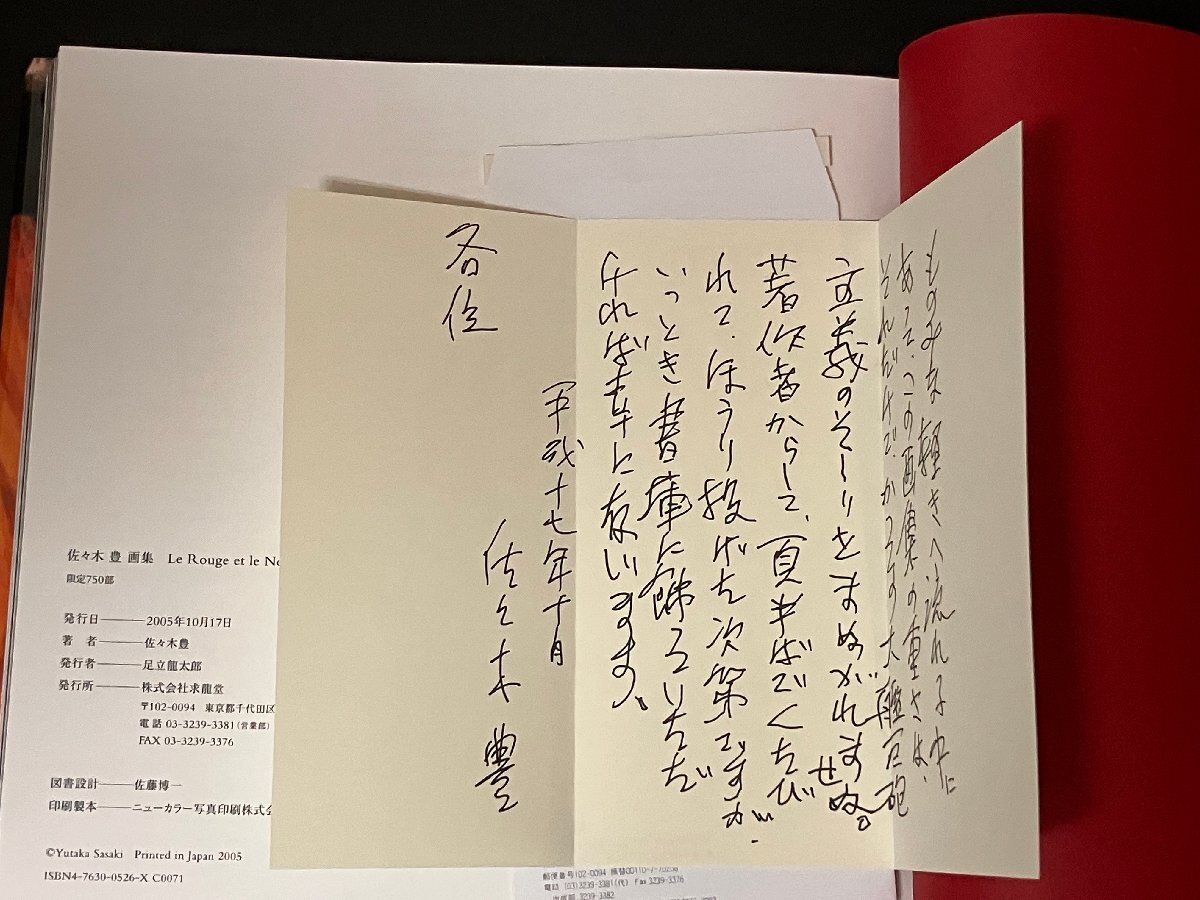 ものみな軽きへ流れる中に
あって、この画集の重さは、
それだけで、かつての大艦巨砲
主義のそしりをまぬがれませぬ。
著作者からして、頁半ばでくたび
れて、ほうり投げた次第ですが、
いっとき書庫に飾っていただ
ければ幸に存じます。
平成十七年十月
佐々木豊
各位
佐々木 豊 画集 Le Rouge et le No
限定750部
発行日――2005年10月17日
著 者――佐々木豊
発行者――足立龍太郎
発行所――株式会社求龍堂
〒102-0094 東京都千代田区
電話 03-3239-3381(営業部)
FAX 03-3239-3376
図書設計――佐藤博一
印刷製本――ニューカラー写真印刷株式会
©Yutaka Sasaki Printed in Japan 2005
ISBN4-7630-0526-X C0071
郵便番号102-0094
電話 (03)3239-3381(代) Fax 3239-3376
3239-3382